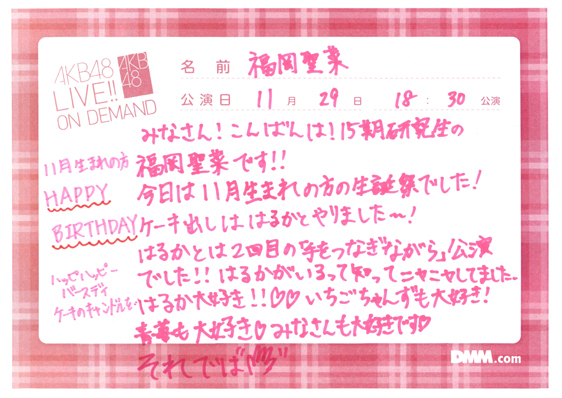 AKB48
LIVE!!
ON DEMAND
AKB
48
名前 福岡聖菜
公演日 11月29日 18:30公演
みなさん!こんばんは!15期研究生の
福岡聖菜です!!
今日は11月生まれの方の生誕祭でした!
ケーキ出しは はるかとやりました〜!
はるかとは2回目の「手をつなぎながら」公演
でした!!はるかがいるって知ってニヤニヤしてました…
はるか大好き!!♡♡いちごちゃんずも大好き!
青菁も大好き♡みなさんも大好きです♡
それでは
11月生まれの方
HAPPY
BIRTHDAY
ハッピハッピー
バースディ
ケーキのキャンドルを♪
DMM.com